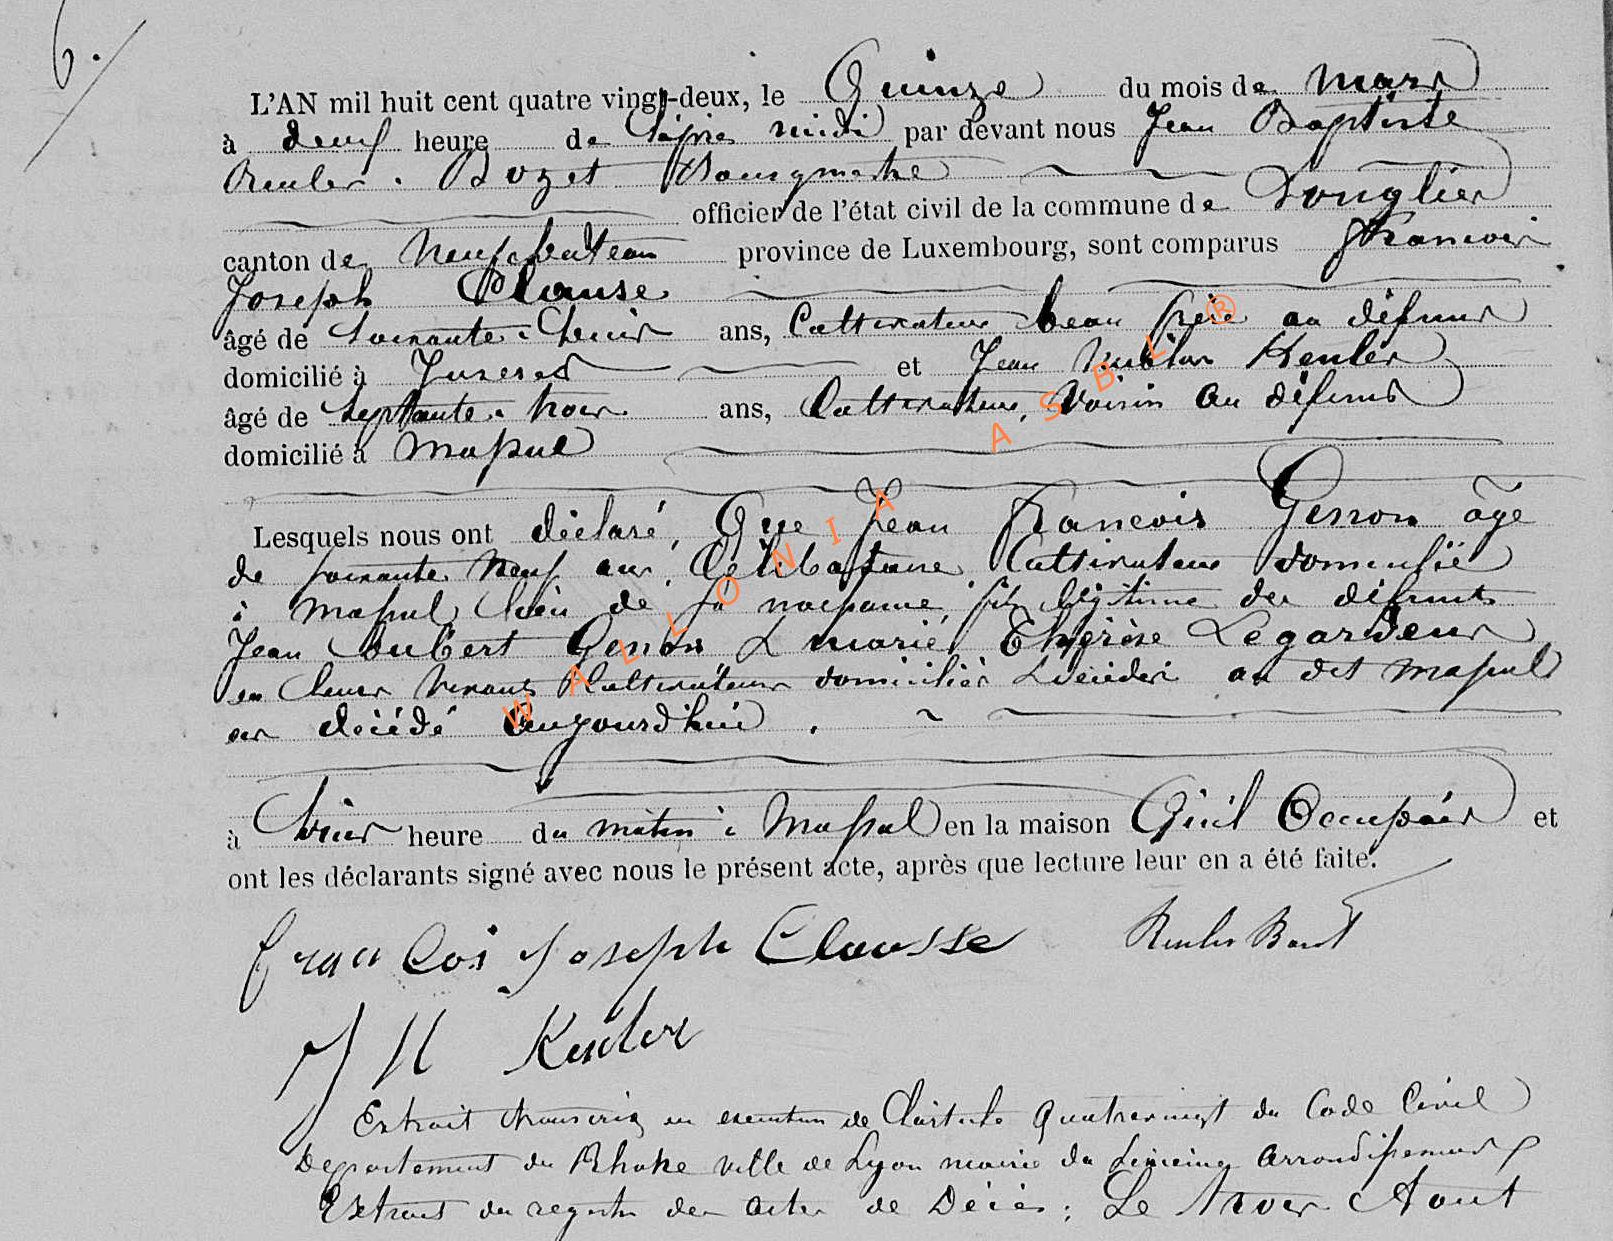 6.
L'AN mil huit cent quatre vingt-deux, le Quinze du mois de mars
à deux heure de l'après midi par devant nous Jean Baptiste
Reuler. Bozet Bourgmestre
officier de l'état civil de la commune de Longlier
canton de Neufchateau province de Luxembourg, sont comparus Francois
Joseph Clausse
âgé de soixante ans, Cultivateur beau frère au défunt
domicilié à Juseret et Jean Keuler
âgé de septante trois ans, Cultivateur, Voisin au défunt
domicilié à Massul
Lesquels nous ont déclaré, Que Jean Francois Genon âgé
de soixante Neuf ans, Célibataire Cultivateur domicilié
à Massul lieu de sa naissance fils légitime des défunts
Jean Genon & marie Thérèse Legardeur
en leurs vivants Cultivateurs domiciliés & décédés au dit Massul
est décédé aujourd'hui.
à heure du matin à Massul en la maison Qu'il Occupait et
ont les déclarants signé avec nous le présent acte, après que lecture leur en a été faite.
francois Joseph Clausse
J H Keuler
Extrait transcrit en execution de l'article Quatrevingt du Code Civil
Departement du Rhone ville de Lyon mairie du arrondissement
Extrait du registre des actes de Décès: Le trois Aout
WALLONIA ASBL ®